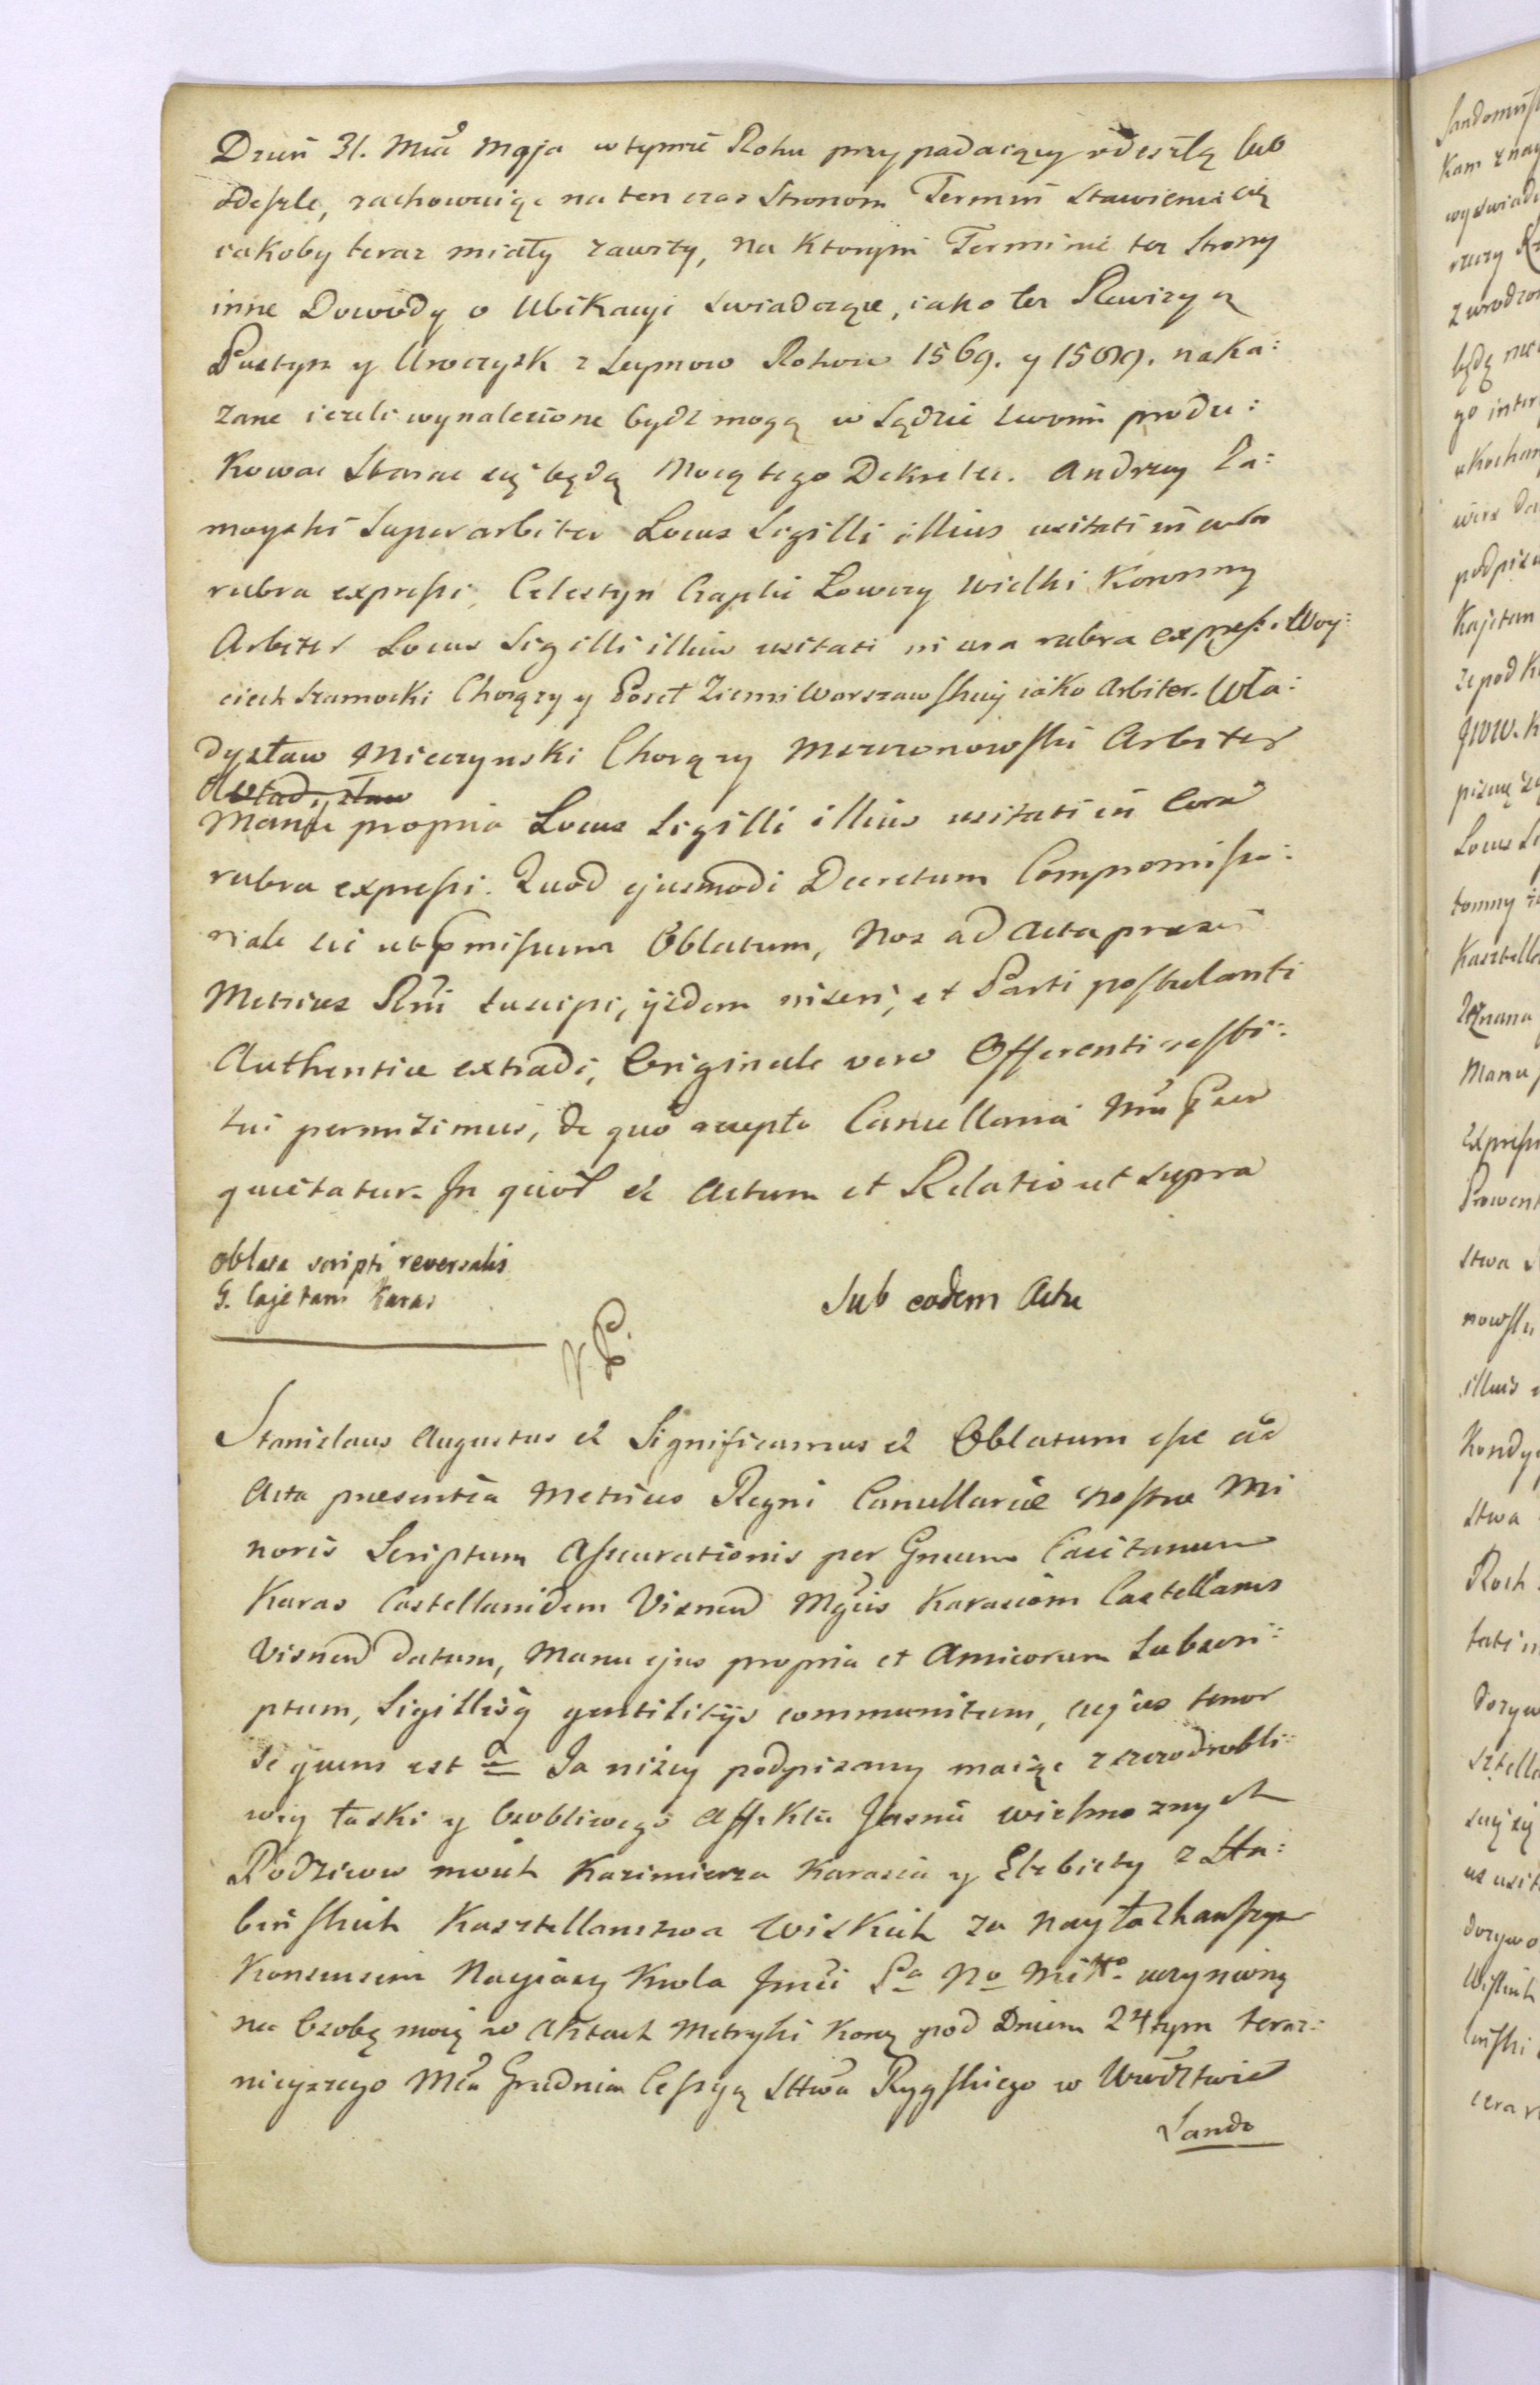 Dzień 31. Mca Maja w tymże Roku przypadaiący odeszlą lub
odeszle, zachowuiąc na ten czas Stronom Termin Stawienia się
iakoby teraz miały zawity, na Ktorym Terminie też Strony
inne Dowody o Ubikacyi swiadczące, iako też Rewizyą
Pustyn y Uroczysk z Seymow Rokow 1569. y 1589. naka:
zane ieżeli wynalezione bydź mogą w Sądzie swoim produ:
kowac Starac się będą Mocą tego Dekretu. Andrzey Za:
moyski Superarbiter Locus Sigilli illius usitati in cera
rubra expressi, Celestyn Czaplic Łowczy Wielki Koronny
Arbiter Locus Sigilli illius usitati in cera rubra express. Woy:
ciech Szamocki Chorąży y Poseł Ziemi Warszawskiey iako Arbiter. Wła:
dysław Mieczynski Chorąży Mszczonowski Arbiter
Władysław
Manu propria Locus Sigilli illius usitati in Cera
rubra expressi. Quod ejusmodi Decretum Compromisso:
riale sic ut pmissum Oblatum, Nos ad Acta praesen
Metrices Rni suscipi, ijsdem inseri, et Parti postulanti
Authentice extradi, Originale vero Offerenti resti:
tui permisimus, de quo recepto Cancellaria
quietatur. In quor et Actum et Relatio ut supra
Oblata scripti reversalis
G. Cajetani Karas
Sub eodem Actu
Stanislaus Augustus et Significamus et Oblatum esse ad
Acta praesentia Metrices Regni Cancellariae Nostrae Mi
noris Scriptum Assecurationis per Gnum Caietanum
Karas Castellanidem Visnen Mgcis Karasiom Castellanis
Visnen datum, Manu ejus propria et Amicorum Subscri:
ptum, Sigillisq gentilitijs communitum, cujus tenor
sequens est Ja niżey podpisany maiąc z szczodrobli:
wey łaski y Osobliwego Affektu Jasnie wielmoznych
Rodzicow moich Kazimierza Karasia y Elzbiety z Sta:
binskich Kasztellanstwa Wiskich za Nayłaskawszym
Konsensem Nayiasn Krola Jmci Pa No Miłło uczynioną
na Osobę moię w Aktach Metryki Kory pod Dniem 24tym teraz:
nieyszego Mca Grudnia Cessyą Sttwa Ryggskiego w Wwodztwie
Sando